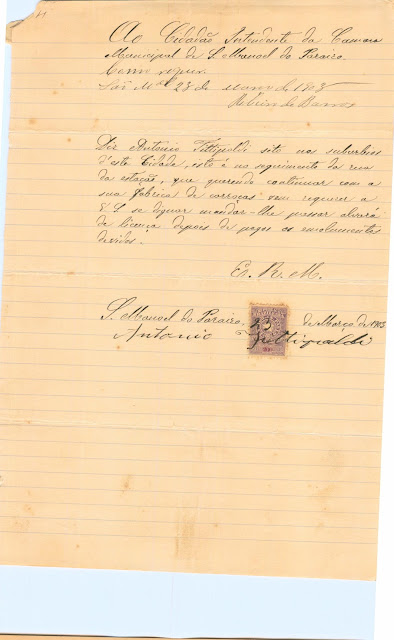 Ao Cidadão Intendente da Camara
Municipal de S. Manoel do Paraizo.
Como requer.
São M.el 23 de março de 1903
Ribeiro de Barros
Diz Antonio Fittipaldi sito nos suburbios
d'esta Cidade, isto é no seguimento da rua
da estação, que querendo continuar com a
sua fabrica de carroças vem requerer a
V. S. se dignar mandar-lhe passar alvará
de licença depois de pagos os emolumentos
devidos.
E. R. M.
S. Manoel do Paraizo, 23 de Março de 1903
Antonio Fittipaldi